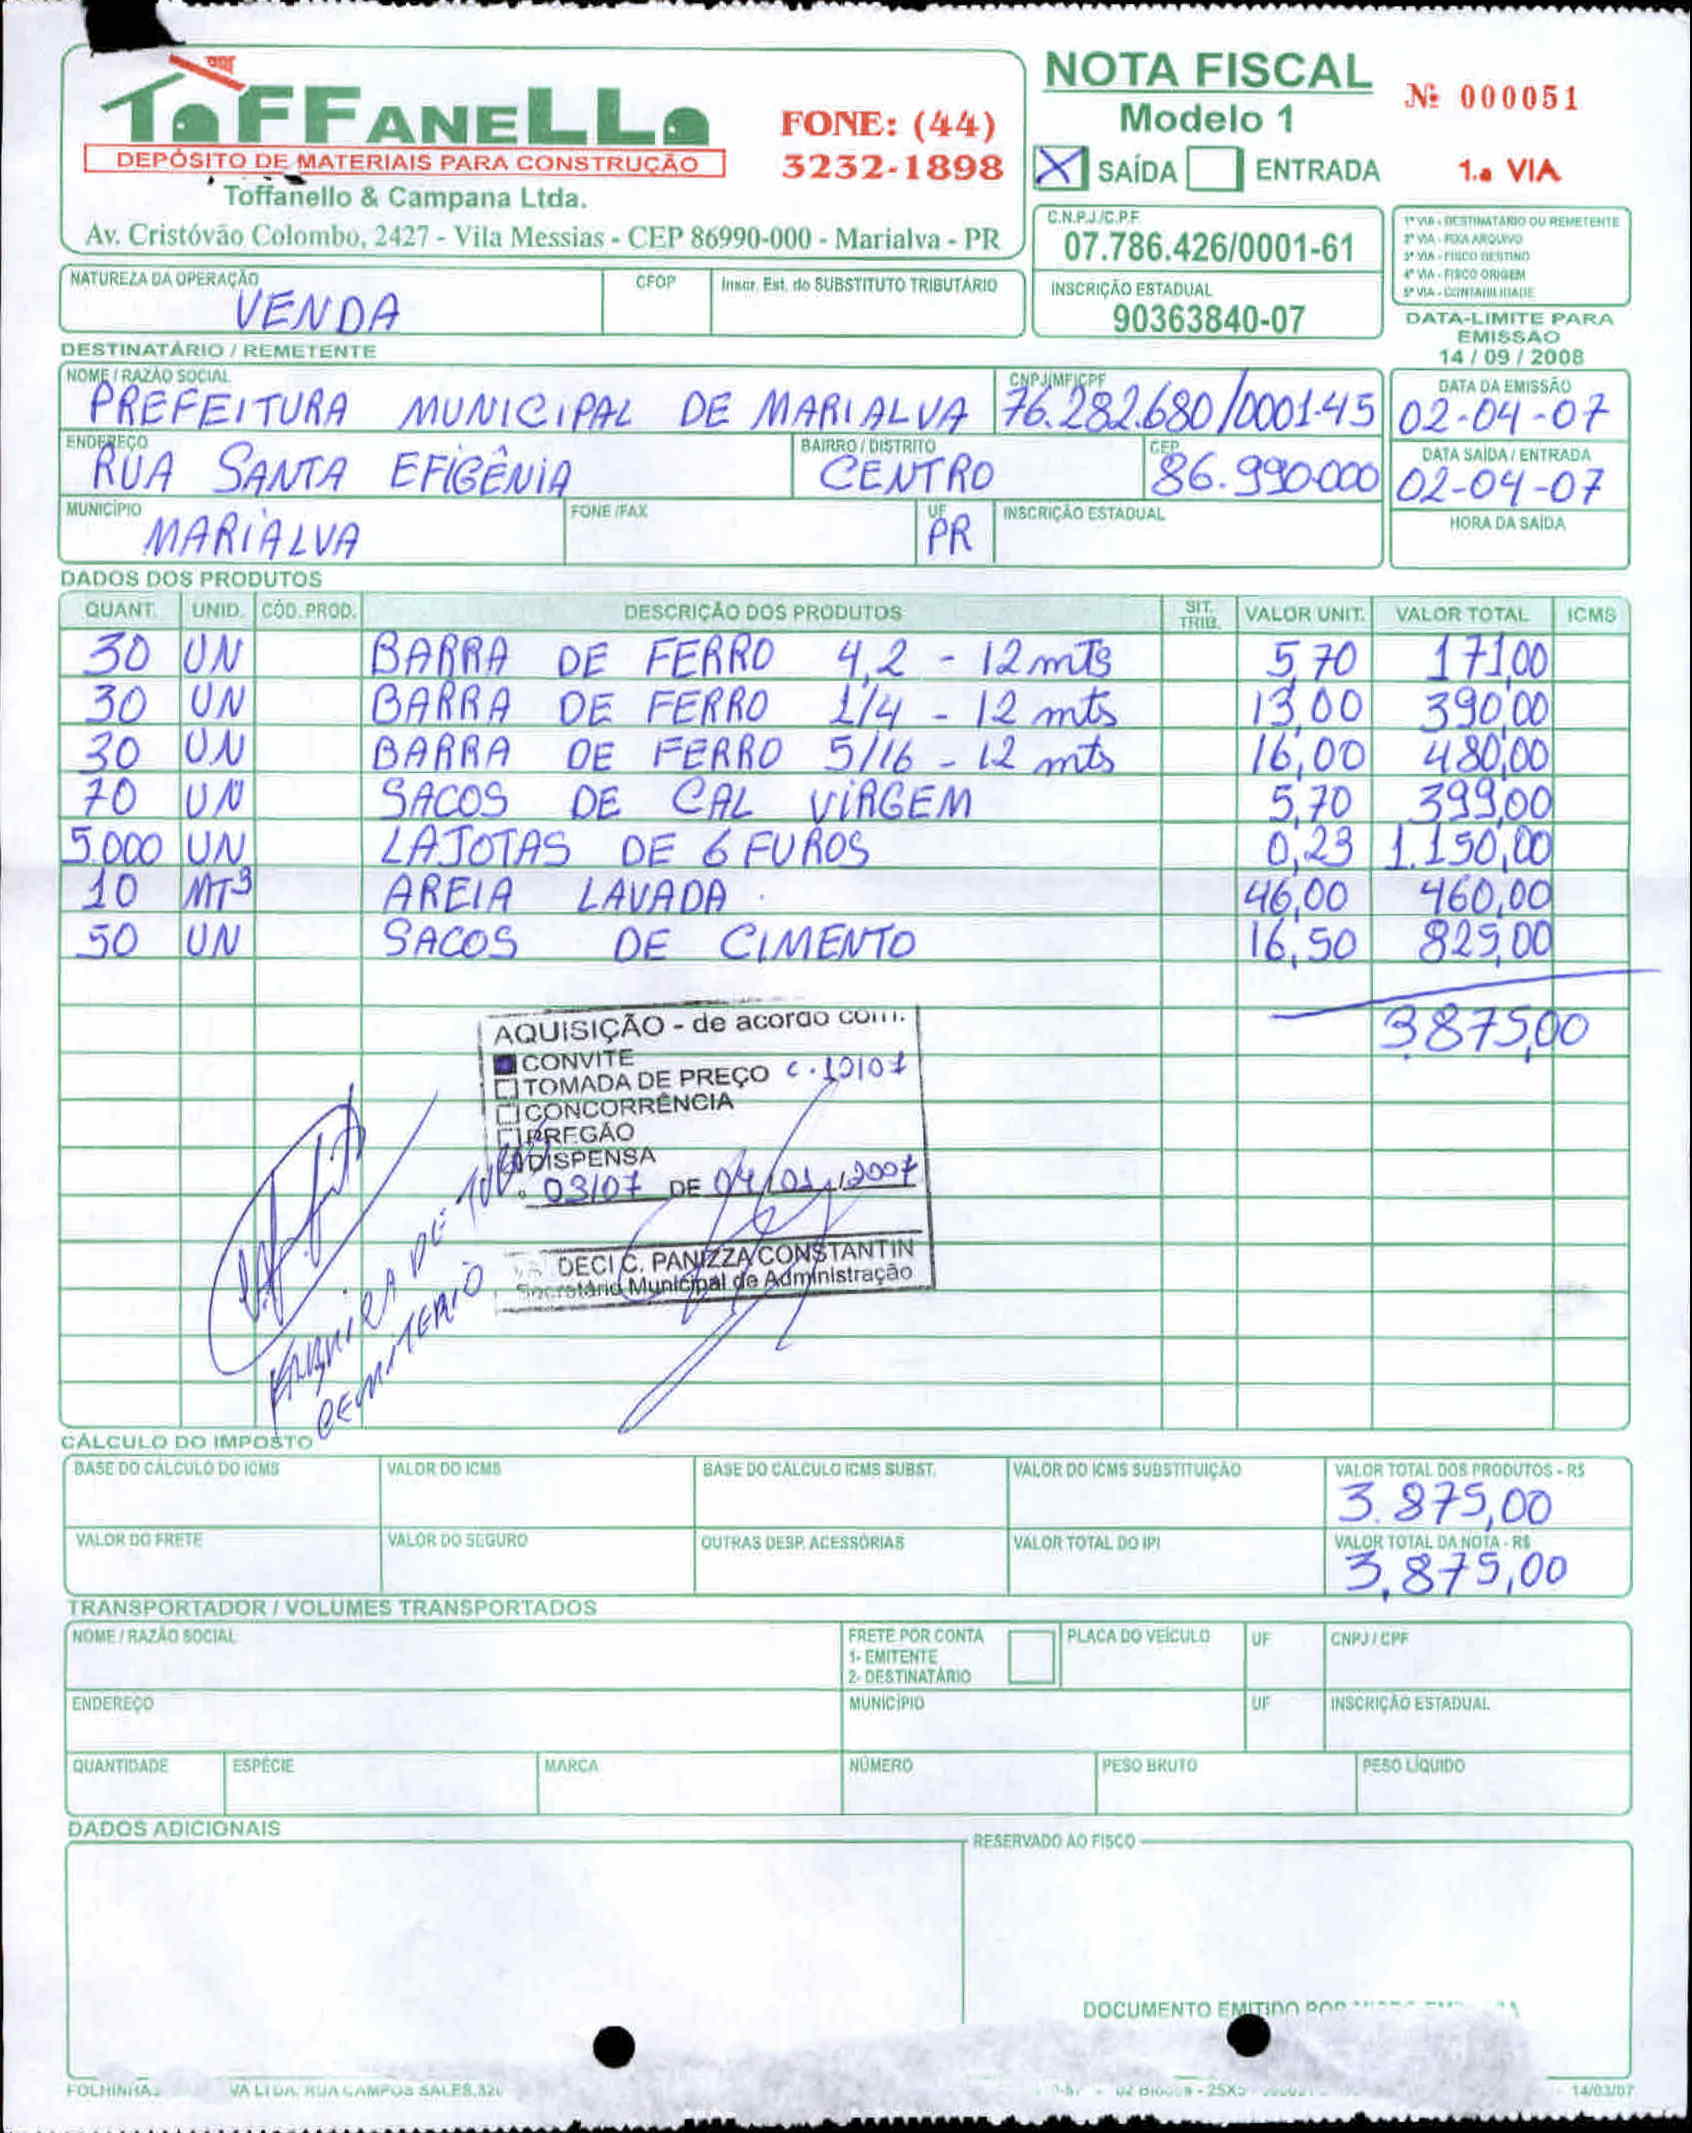 ToFFANELLo
DEPÓSITO DE MATERIAIS PARA CONSTRUÇÃO
Toffanello & Campana Ltda.
Av. Cristóvão Colombo, 2427 - Vila Messias - CEP 86990-000 - Marialva - PR
FONE: (44)
3232-1898
NOTA FISCAL
Modelo 1
X SAÍDA ENTRADA
Nº 000051
1.a VIA
C.N.P.J./C.P.F.
07.786.426/0001-61
INSCRIÇÃO ESTADUAL
90363840-07
1ª VIA - DESTINATÁRIO OU REMETENTE
2ª VIA - FIXA ARQUIVO
3ª VIA - FISCO DESTINO
4ª VIA - FISCO ORIGEM
5ª VIA - CONTABILIDADE
DATA-LIMITE PARA
EMISSÃO
14 / 09 / 2008
NATUREZA DA OPERAÇÃO CFOP Inscr. Est. do SUBSTITUTO TRIBUTÁRIO
VENDA
DESTINATÁRIO / REMETENTE
NOME / RAZÃO SOCIAL CNPJ/MF/CPF DATA DA EMISSÃO
PREFEITURA MUNICIPAL DE MARIALVA 76.282.680/0001-45 02-04-07
ENDEREÇO BAIRRO / DISTRITO CEP DATA SAÍDA / ENTRADA
RUA SANTA EFIGÊNIA CENTRO 86.990.000 02-04-07
MUNICÍPIO FONE/FAX UF INSCRIÇÃO ESTADUAL HORA DA SAÍDA
MARIALVA PR
DADOS DOS PRODUTOS
QUANT. UNID. CÓD. PROD. DESCRIÇÃO DOS PRODUTOS SIT. TRIB. VALOR UNIT. VALOR TOTAL ICMS
30 UN BARRA DE FERRO 4,2 - 12 mTS 5,70 171,00
30 UN BARRA DE FERRO 1/4 - 12 mts 13,00 390,00
30 UN BARRA DE FERRO 5/16 - 12 mts 16,00 480,00
70 UN SACOS DE CAL VIRGEM 5,70 399,00
5.000 UN LAJOTAS DE 6 FUROS 0,23 1.150,00
10 MT3 AREIA LAVADA . 46,00 460,00
50 UN SACOS DE CIMENTO 16,50 825,00
3.875,00
AQUISIÇÃO - de acordo com:
CONVITE
TOMADA DE PREÇO
CONCORRÊNCIA
PREGÃO
DISPENSA
03/07 DE 04/01/2007
DECI C. PANIZZA CONSTANTIN
Secretário Municipal de Administração
CEMITERIO
CÁLCULO DO IMPOSTO
BASE DO CÁLCULO DO ICMS VALOR DO ICMS BASE DO CÁLCULO ICMS SUBST. VALOR DO ICMS SUBSTITUIÇÃO VALOR TOTAL DOS PRODUTOS - R$
3.875,00
VALOR DO FRETE VALOR DO SEGURO OUTRAS DESP. ACESSÓRIAS VALOR TOTAL DO IPI VALOR TOTAL DA NOTA - R$
3.875,00
TRANSPORTADOR / VOLUMES TRANSPORTADOS
NOME / RAZÃO SOCIAL FRETE POR CONTA PLACA DO VEÍCULO UF CNPJ / CPF
1- EMITENTE
2- DESTINATÁRIO
ENDEREÇO MUNICÍPIO UF INSCRIÇÃO ESTADUAL
QUANTIDADE ESPÉCIE MARCA NÚMERO PESO BRUTO PESO LÍQUIDO
DADOS ADICIONAIS
RESERVADO AO FISCO
DOCUMENTO EMITIDO POR
LTDA. RUA CAMPOS SALES, 14/03/07